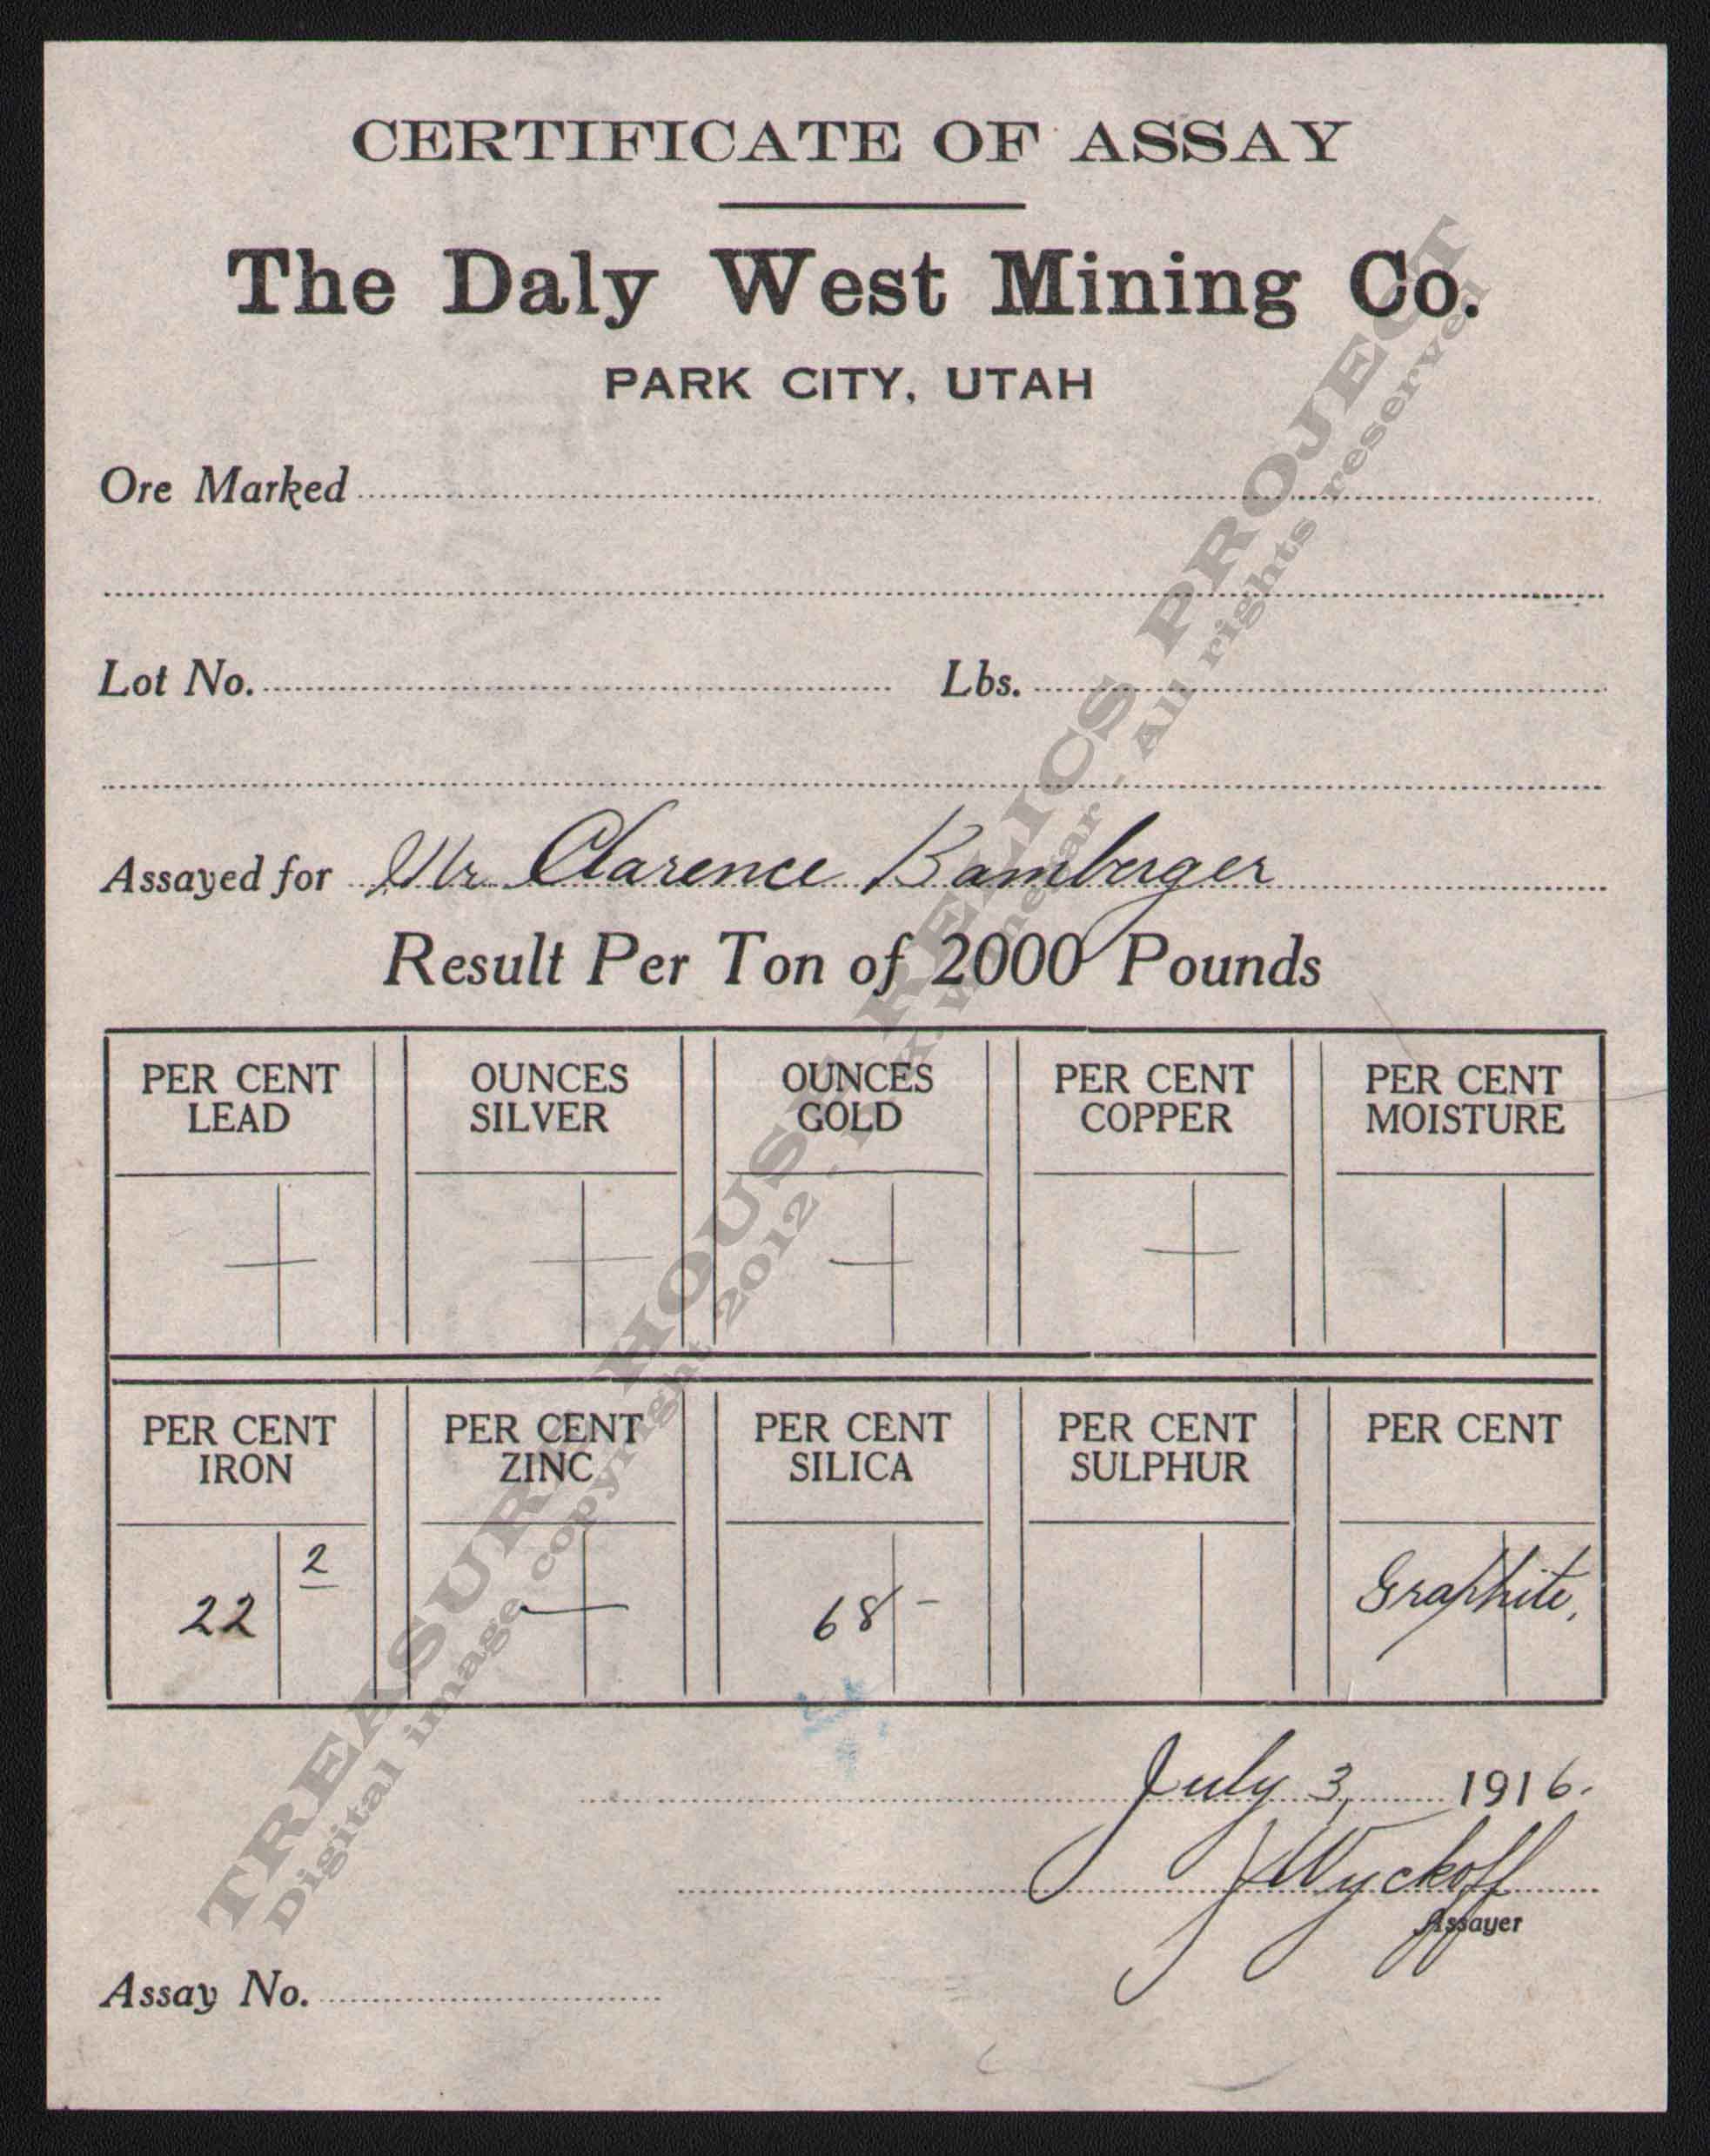 CERTIFICATE OF ASSAY
The Daly West Mining Co.
PARK CITY, UTAH
Ore Marked
Lot No. Lbs.
Assayed for Mr Clarence Bamberger
Result Per Ton of 2000 Pounds
PER CENT LEAD OUNCES SILVER OUNCES GOLD PER CENT COPPER PER CENT MOISTURE
PER CENT IRON PER CENT ZINC PER CENT SILICA PER CENT SULPHUR PER CENT
22 2 — 68 - Graphite,
July 3, 1916.
J Wyckoff
Assayer
Assay No.
TREASURE HOUSE RELICS PROJECT
Digital image copyright 2012 - All rights reserved